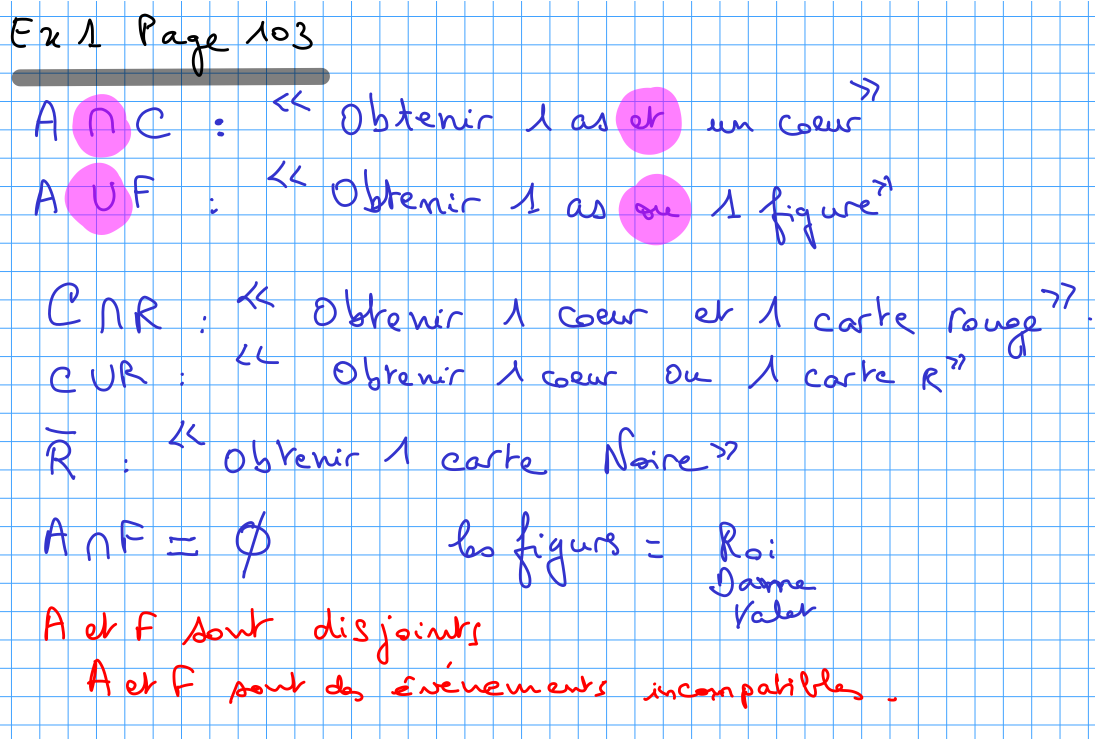 Ex 1 Page 103
A ∩ C : << Obtenir 1 as et un coeur >>
A ∪ F : << Obtenir 1 as ou 1 figure >>
C ∩ R : << Obtenir 1 coeur et 1 carte rouge >>.
C ∪ R : << Obtenir 1 coeur ou 1 carte R >>
R̅ : << Obtenir 1 carte Noire >>
A ∩ F = ∅ les figures = Roi
Dame
Valet
A et F sont disjoints
A et F sont des événements incompatibles.